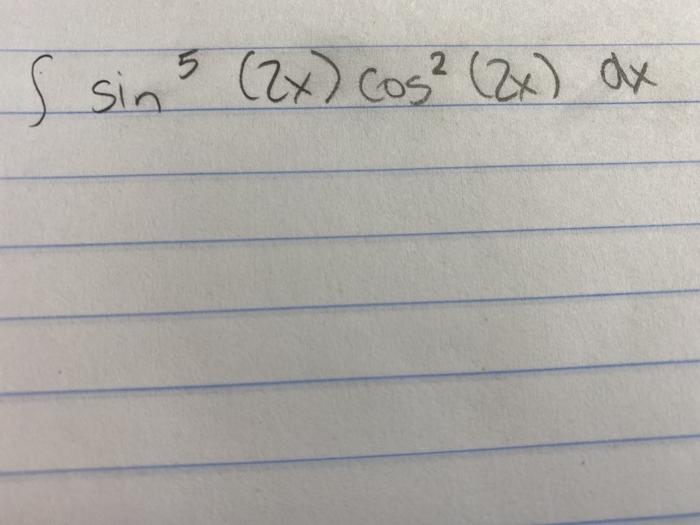 ∫ sin⁵ (2x) cos² (2x) dx